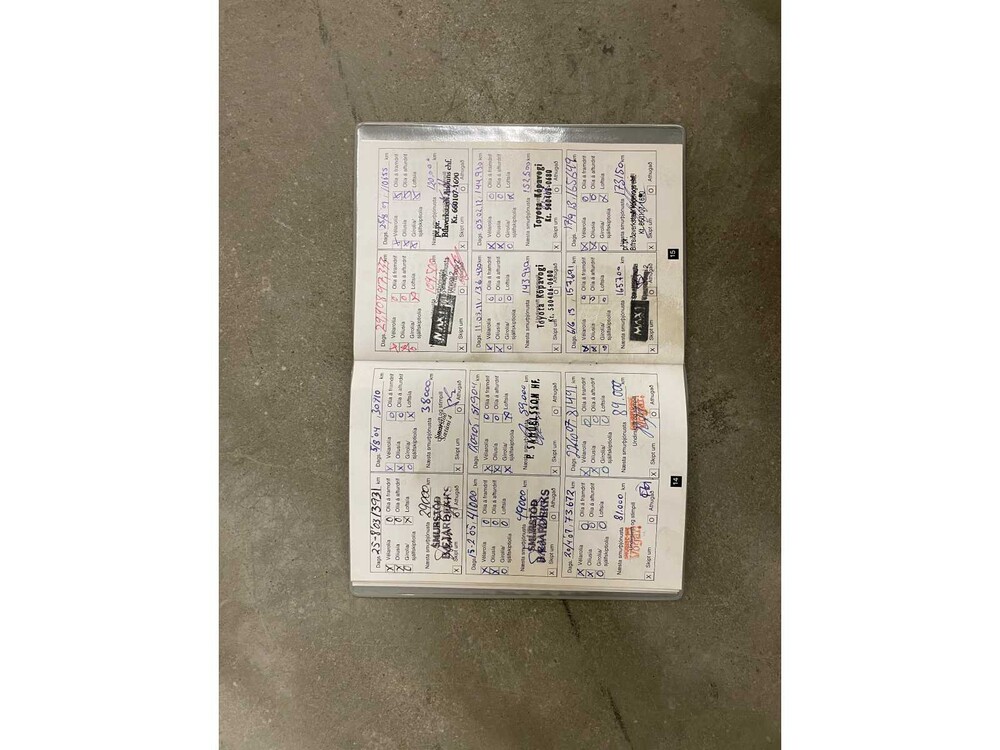 Dags. 25-8 03 13931 km
Vélarolía
Olía á framdrif
Olíusía
Olía á afturdrif
Gírolía/
sjálfskiptiolía
Loftsía
Næsta smurþjónusta 29000 km
SMURSTÖÐ
BÆJARDEKKS
X Skipt um
O Athugað
Dags. 3/8 04 30710 km
Vélarolía
Olía á framdrif
Olíusía
Olía á afturdrif
Gírolía/
sjálfskiptiolía
Loftsía
Næsta smurþjónusta 38000 km
X Skipt um
O Athugað
Dags. 15-2 05 41000 km
Vélarolía
Olía á framdrif
Olíusía
Olía á afturdrif
Gírolía/
sjálfskiptiolía
Loftsía
Næsta smurþjónusta 49000 km
SMURSTÖÐ
BÆJARDEKKS
X Skipt um
O Athugað
km
Vélarolía
Olía á framdrif
Olíusía
Olía á afturdrif
Gírolía/
sjálfskiptiolía
Loftsía
Næsta smurþjónusta 59.000 km
P. SAMÚELSSON HF.
X Skipt um
O Athugað
Dags. 20/4 '07 73.672 km
Vélarolía
Olía á framdrif
Olíusía
Olía á afturdrif
Gírolía/
sjálfskiptiolía
Loftsía
Næsta smurþjónusta 81.000 km
X Skipt um
O Athugað
Dags. 22/10 07 81491 km
Vélarolía
Olía á framdrif
Olíusía
Olía á afturdrif
Gírolía/
sjálfskiptiolía
Loftsía
Næsta smurþjónusta 89.000 km
X Skipt um
O Athugað
14
Dags. 29.9 08 km
Vélarolía
Olía á framdrif
Olíusía
Olía á afturdrif
Gírolía/
sjálfskiptiolía
Loftsía
MAX1
X Skipt um
O Athugað
Dags. 110155 km
Vélarolía
Olía á framdrif
Olíusía
Olía á afturdrif
Gírolía/
sjálfskiptiolía
Loftsía
Næsta smurþjónusta 120.000 km
pr.pr.
ehf.
Kt. 660107-1690
X Skipt um
O Athugað
Dags. 11.03.11 136.430 km
Vélarolía
Olía á framdrif
Olíusía
Olía á afturdrif
Gírolía/
sjálfskiptiolía
Loftsía
Næsta smurþjónusta 143930 km
Toyota Kópavogi
X Skipt um
O Athugað
Dags. 03.02.12 144.930 km
Vélarolía
Olía á framdrif
Olíusía
Olía á afturdrif
Gírolía/
sjálfskiptiolía
Loftsía
Næsta smurþjónusta 152500 km
Toyota Kópavogi
X Skipt um
O Athugað
Dags. 6/6 13 157691 km
Vélarolía
Olía á framdrif
Olíusía
Olía á afturdrif
Gírolía/
sjálfskiptiolía
Loftsía
Næsta smurþjónusta 165700 km
MAX1
X Skipt um
O Athugað
Dags. 165649 km
Vélarolía
Olía á framdrif
Olíusía
Olía á afturdrif
Gírolía/
sjálfskiptiolía
Loftsía
Næsta smurþjónusta 173150 km
pr.pr.
X Skipt um
O Athugað
15